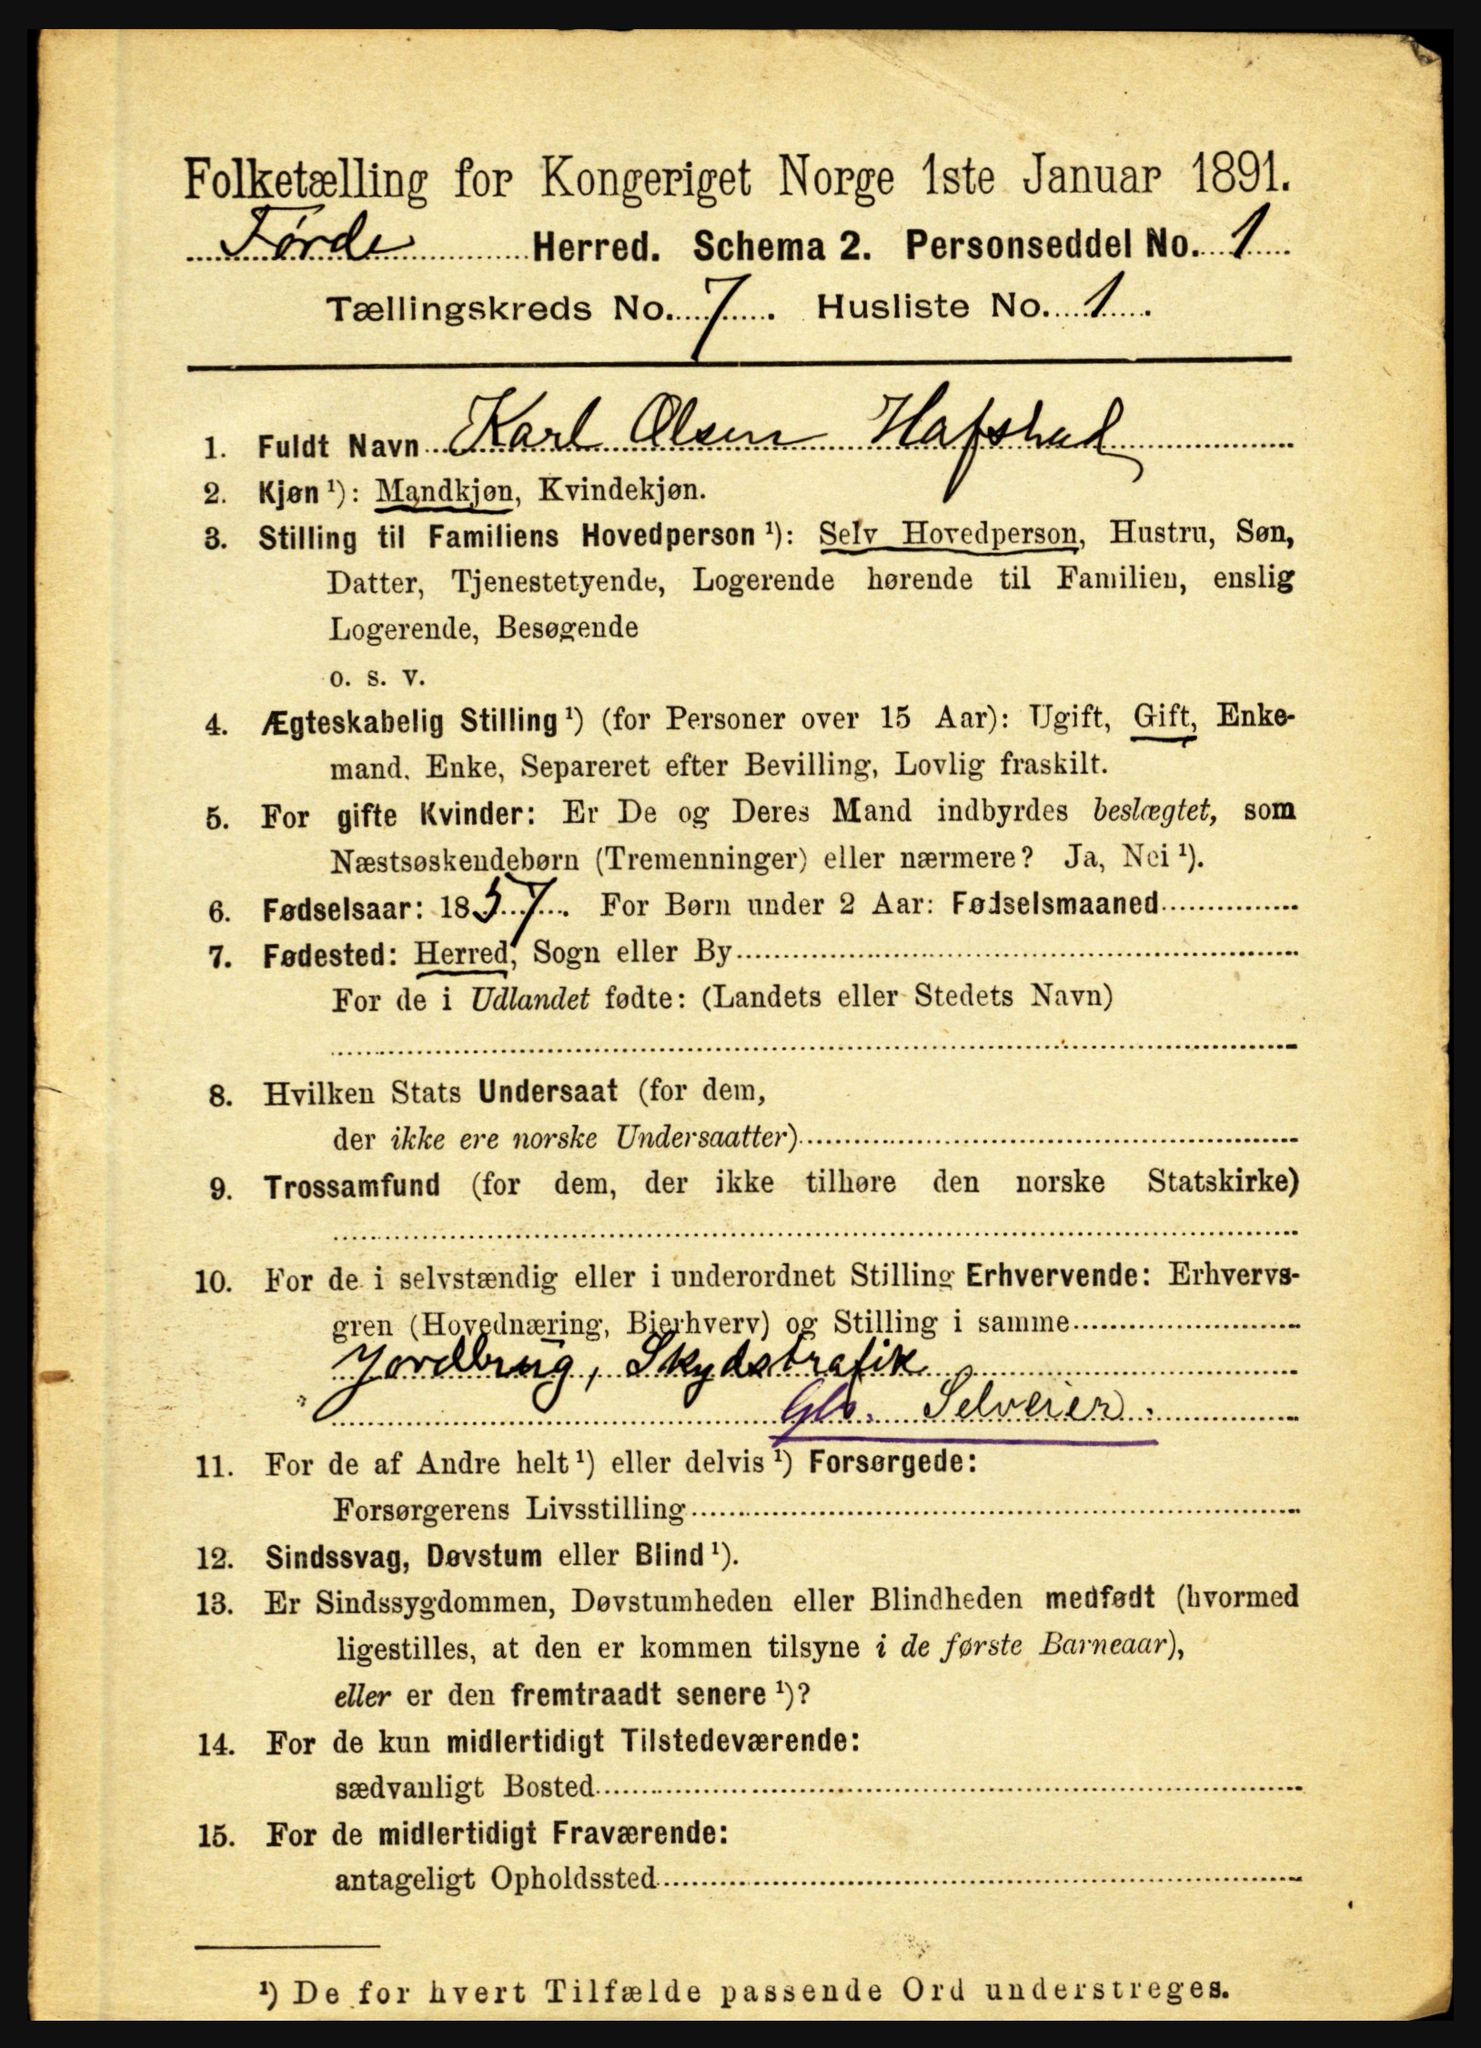 Folketælling for Kongeriget Norge 1ste Januar 1891.
Førde Herred. Schema 2. Personseddel No. 1
Tællingskreds No. 7. Husliste No. 1.
1. Fuldt Navn Karl Olsen Hafstad
2. Kjøn ¹): Mandkjøn, Kvindekjøn.
3. Stilling til Familiens Hovedperson ¹): Selv Hovedperson, Hustru, Søn,
Datter, Tjenestetyende, Logerende hørende til Familien, enslig
Logerende, Besøgende
o. s. v.
4. Ægteskabelig Stilling ¹) (for Personer over 15 Aar): Ugift, Gift, Enke-
mand, Enke, Separeret efter Bevilling, Lovlig fraskilt.
5. For gifte Kvinder: Er De og Deres Mand indbyrdes beslægtet, som
Næstsøskendebørn (Tremenninger) eller nærmere? Ja, Nei ¹).
6. Fødselsaar: 1857. For Børn under 2 Aar: Fødselsmaaned
7. Fødested: Herred, Sogn eller By
For de i Udlandet fødte: (Landets eller Stedets Navn)
8. Hvilken Stats Undersaat (for dem,
der ikke ere norske Undersaatter)
9. Trossamfund (for dem, der ikke tilhøre den norske Statskirke)
10. For de i selvstændig eller i underordnet Stilling Erhvervende: Erhvervs-
gren (Hovednæring, Bierhverv) og Stilling i samme
Jordbrug, Skydstrafik
Selveier.
11. For de af Andre helt ¹) eller delvis ¹) Forsørgede:
Forsørgerens Livsstilling
12. Sindssvag, Døvstum eller Blind ¹).
13. Er Sindssygdommen, Døvstumheden eller Blindheden medfødt (hvormed
ligestilles, at den er kommen tilsyne i de første Barneaar),
eller er den fremtraadt senere ¹)?
14. For de kun midlertidigt Tilstedeværende:
sædvanligt Bosted
15. For de midlertidigt Fraværende:
antageligt Opholdssted
¹) De for hvert Tilfælde passende Ord understreges.